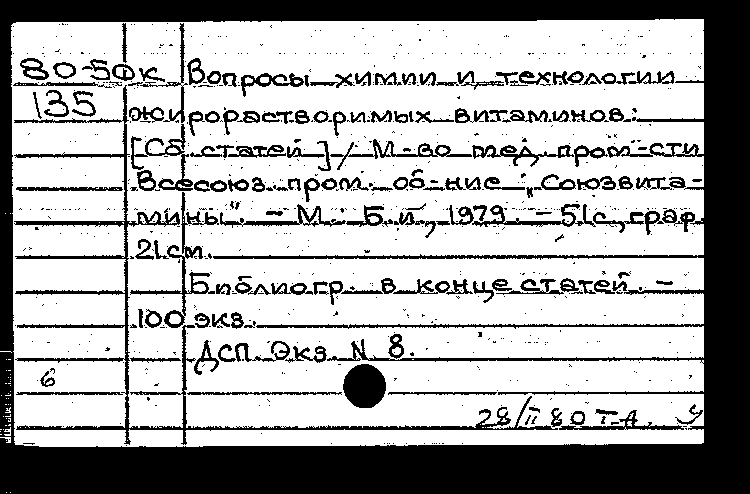 80-5Фк Вопросы химии и технологии
135 жирорастворимых витаминов:
[Сб. статей] / М-во мед. пром-сти
Всесоюз. пром. об-ние "Союзвита-
мины". - М.: Б.и., 1979. - 51с., граф.
21 см.
Библиогр. в конце статей. -
100 экз.
ДСП. Экз. N 8.
6
28/II 80 Т-А.